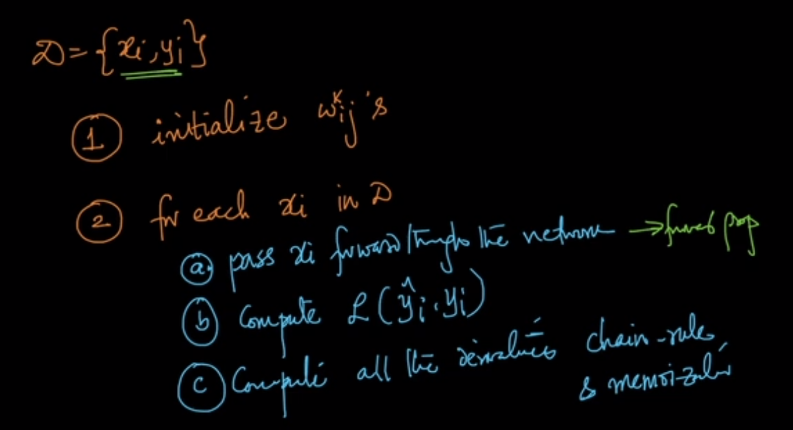 D = {xi, yi}
① initialize wᵏij's
② for each xi in D
ⓐ pass xi forward through the network → forward prop
ⓑ Compute L(ŷi, yi)
ⓒ Compute all the derivatives chain-rule
& memoization